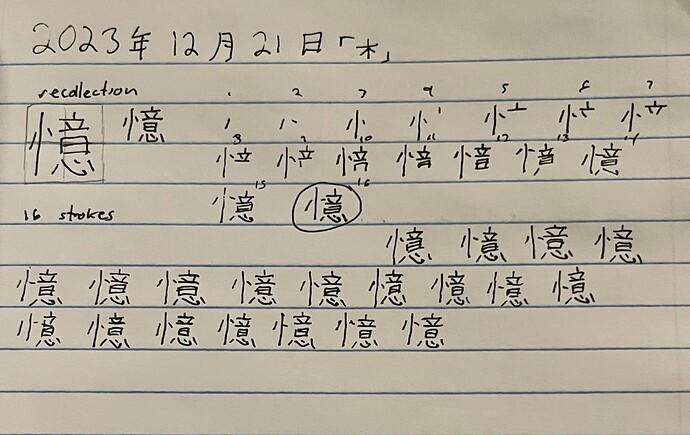 2023年 12月 21日「木」
recollection 1 2 3 4 5 6 7
憶 憶
8 9 10 11 12 13 14
15 16
憶
16 strokes
憶 憶 憶 憶
憶 憶 憶 憶 憶 憶 憶 憶 憶
憶 憶 憶 憶 憶 憶 憶